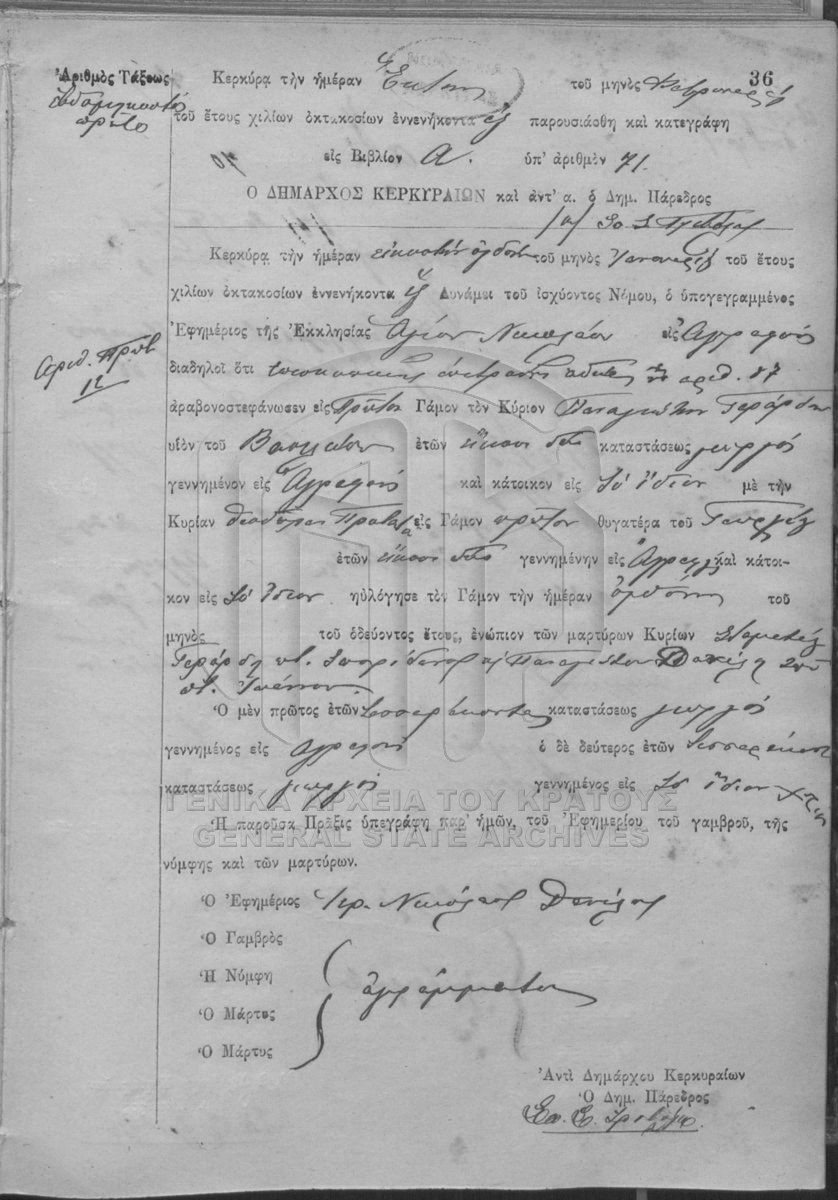 36
Ἀριθμὸς Τάξεως
ἑβδομηκοστὸν
πρῶτο
Κερκύρα τὴν ἡμέραν Ἕκτην τοῦ μηνὸς Φεβρουαρίου
τοῦ ἔτους χιλίων ὀκτακοσίων ἐννενήκοντα ἓξ παρουσιάσθη καὶ κατεγράφη
εἰς Βιβλίον Α. ὑπ' ἀριθμὸν 71.
Ο ΔΗΜΑΡΧΟΣ ΚΕΡΚΥΡΑΙΩΝ καὶ ἀντ' α. ὁ Δημ. Πάρεδρος
Κερκύρᾳ τὴν ἡμέραν εἰκοστὴν ὀγδόην τοῦ μηνὸς Ἰανουαρίου τοῦ ἔτους
χιλίων ὀκτακοσίων ἐννενήκοντα ἓξ Δυνάμει τοῦ ἰσχύοντος Νόμου, ὁ ὑπογεγραμμένος
Ἐφημέριος τῆς Ἐκκλησίας Ἁγίου Νικολάου εἰς Ἀγραφοὺς
Ἀριθ. Πρωτ
12
διαδηλοῖ ὅτι ἐπισκοπικῆς ἀδείας ἀριθ. 87
ἀραβονοστεφάνωσεν εἰς Πρῶτον Γάμον τὸν Κύριον Παναγιώτην Γεράρδην
υἱὸν τοῦ Βασιλείου ἐτῶν εἴκοσι δύο καταστάσεως γεωργὸς
γεννημένον εἰς Ἀγραφοὺς καὶ κάτοικον εἰς τὸ ἴδιον μὲ τὴν
Κυρίαν Θεοδώραν εἰς Γάμον πρῶτον θυγατέρα τοῦ Γεωργίου
ἐτῶν εἴκοσι δύο γεννημένην εἰς Ἀγραφοὺς καὶ κάτοι-
κον εἰς τὸ ἴδιον ηὐλόγησε τὸν Γάμον τὴν ἡμέραν ὀγδόην τοῦ
μηνὸς τοῦ ὁδεύοντος ἔτους, ἐνώπιον τῶν μαρτύρων Κυρίων Σταματίου
Γεράρδη υἱ. Σπυρίδωνος κ Παναγιώτου
υἱ. Ἰωάννου.
Ὁ μὲν πρῶτος ἐτῶν τεσσαράκοντα καταστάσεως γεωργὸς
γεννημένος εἰς Ἀγραφοὺς ὁ δὲ δεύτερος ἐτῶν τεσσαράκοντα
καταστάσεως γεωργὸς γεννημένος εἰς τὸ ἴδιον χωρίον
ΓΕΝΙΚΑ ΑΡΧΕΙΑ ΤΟΥ ΚΡΑΤΟΥΣ
GENERAL STATE ARCHIVES
Ἡ παροῦσα Πρᾶξις ὑπεγράφη παρ' ἡμῶν, τοῦ Ἐφημερίου τοῦ γαμβροῦ, τῆς
νύμφης καὶ τῶν μαρτύρων.
Ὁ Ἐφημέριος Ἱερ. Νικόλαος
Ὁ Γαμβρὸς
Ἡ Νύμφη
ἀγράμματοι
Ὁ Μάρτυς
Ὁ Μάρτυς
Ἀντὶ Δημάρχου Κερκυραίων
Ὁ Δημ. Πάρεδρος